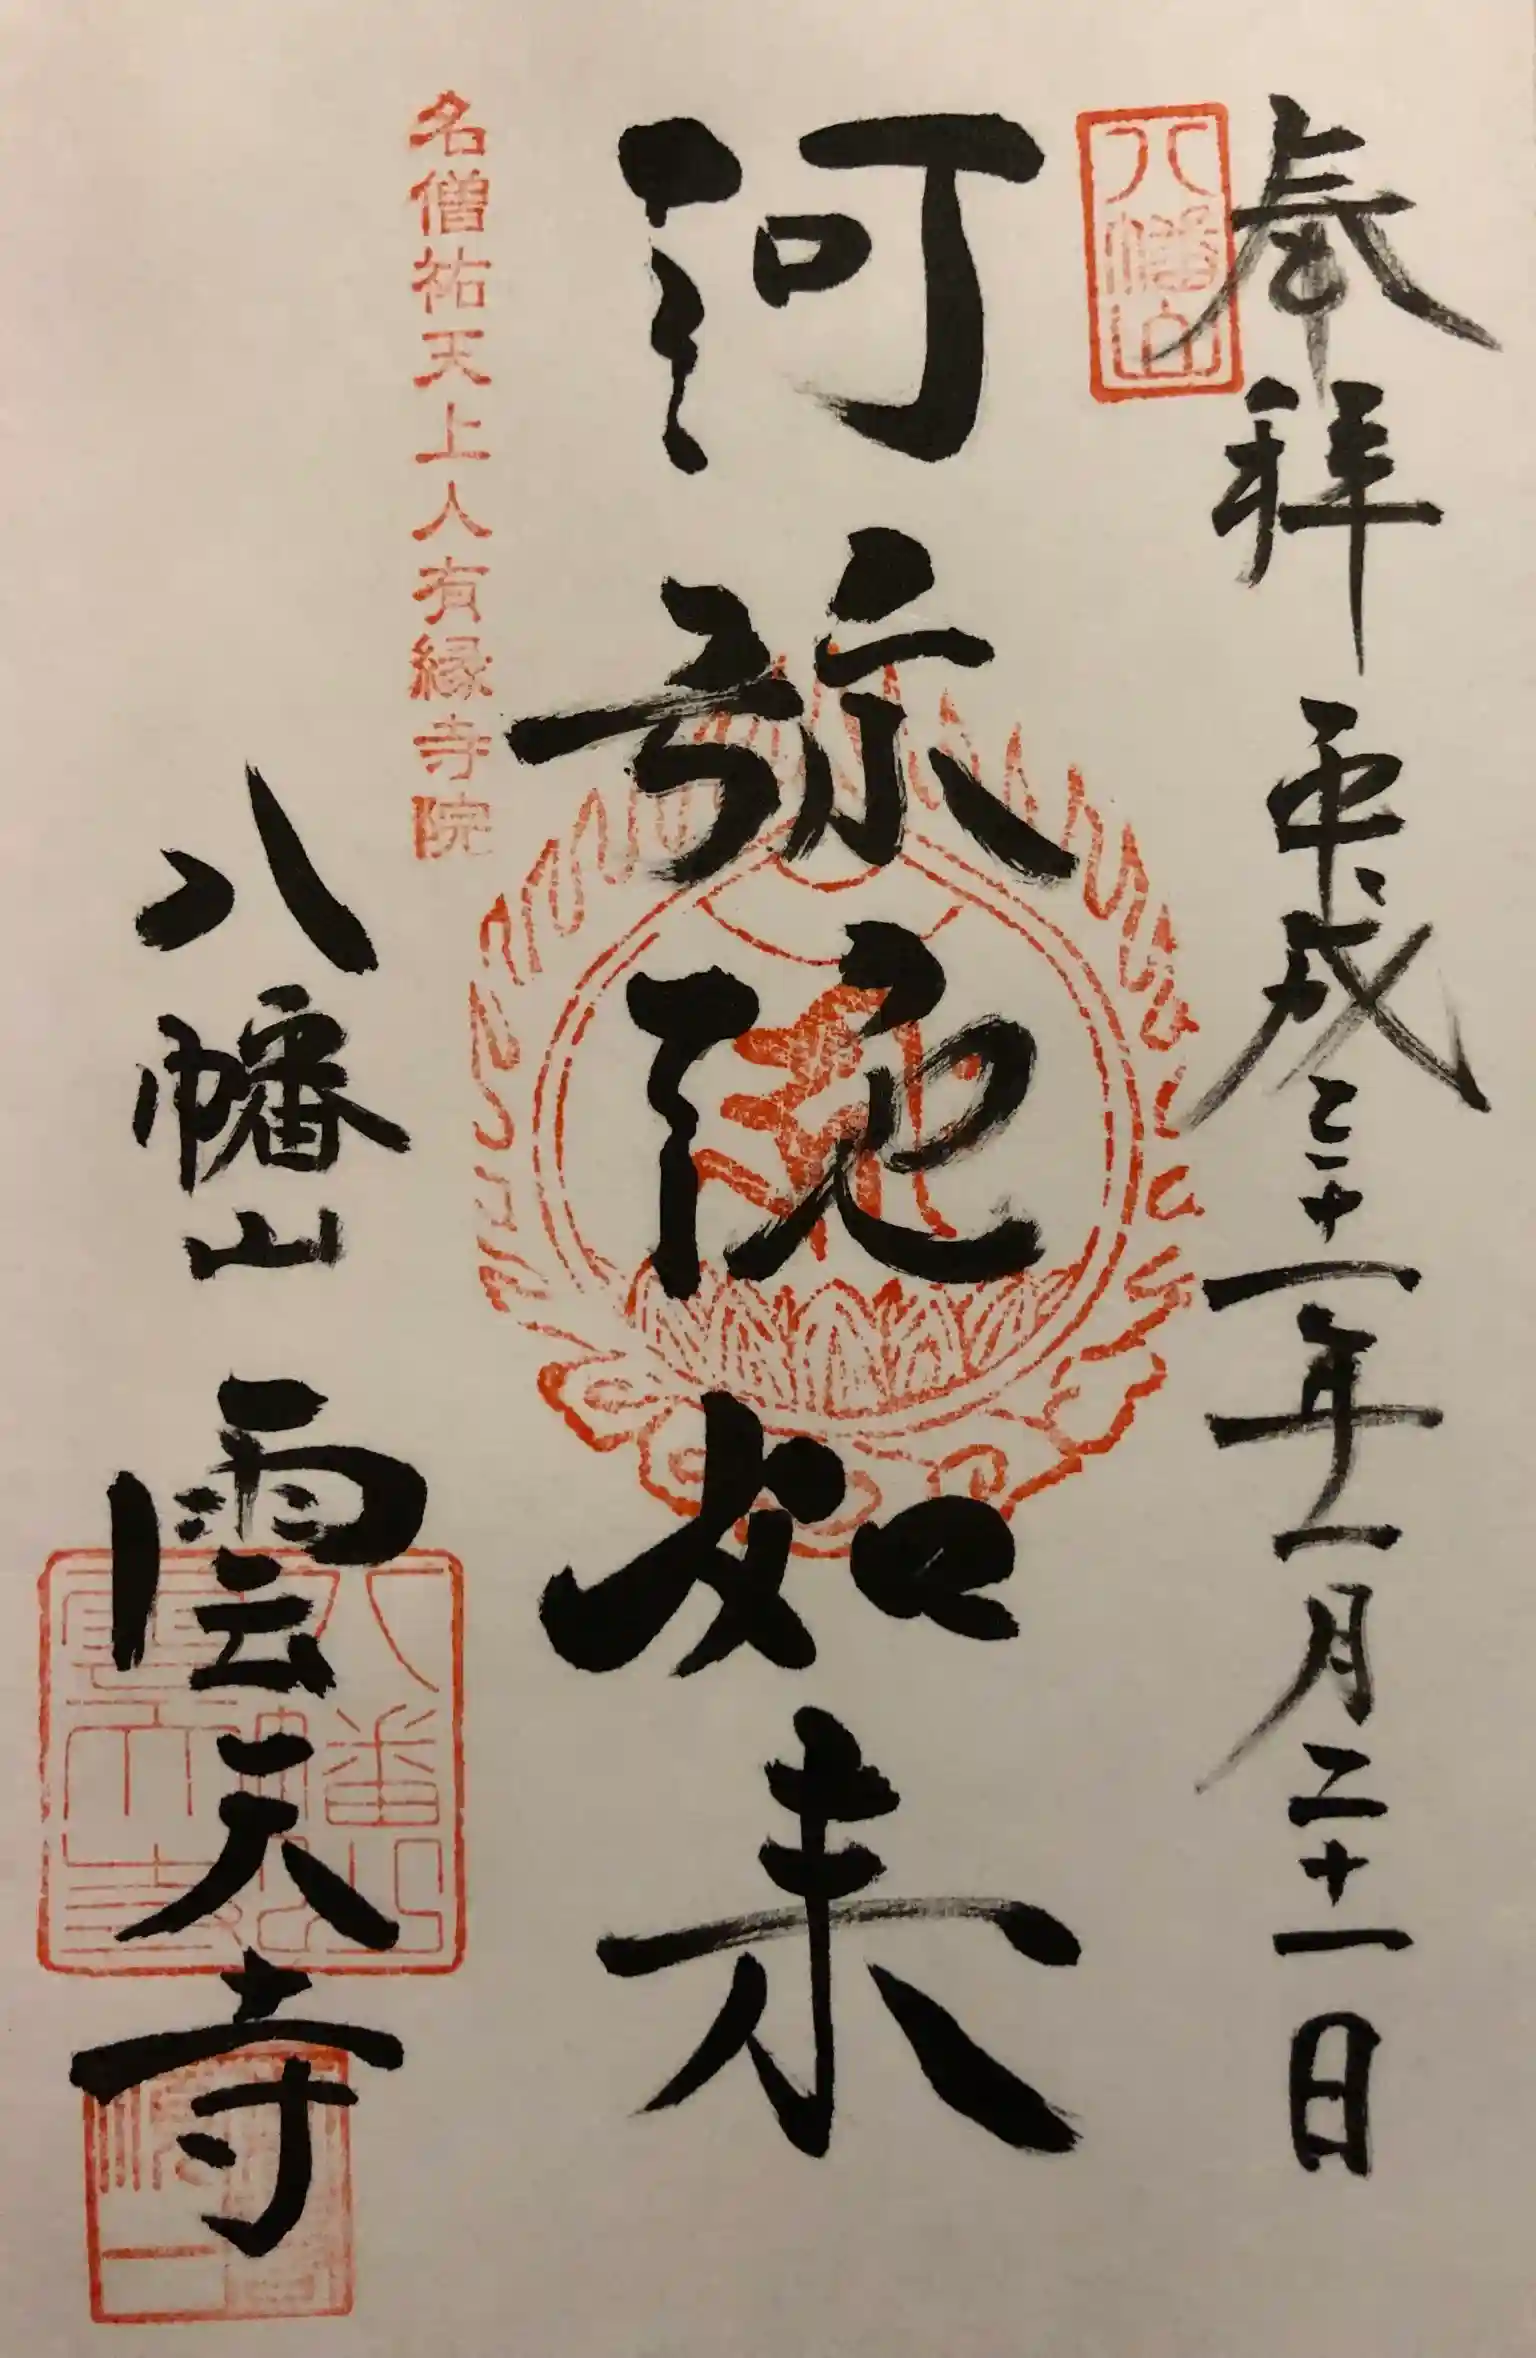 奉拝 平成三十一年一月二十一日
八幡山
阿弥陀如来
名僧祐天上人有縁寺院
八幡山 雲天寺
八幡山